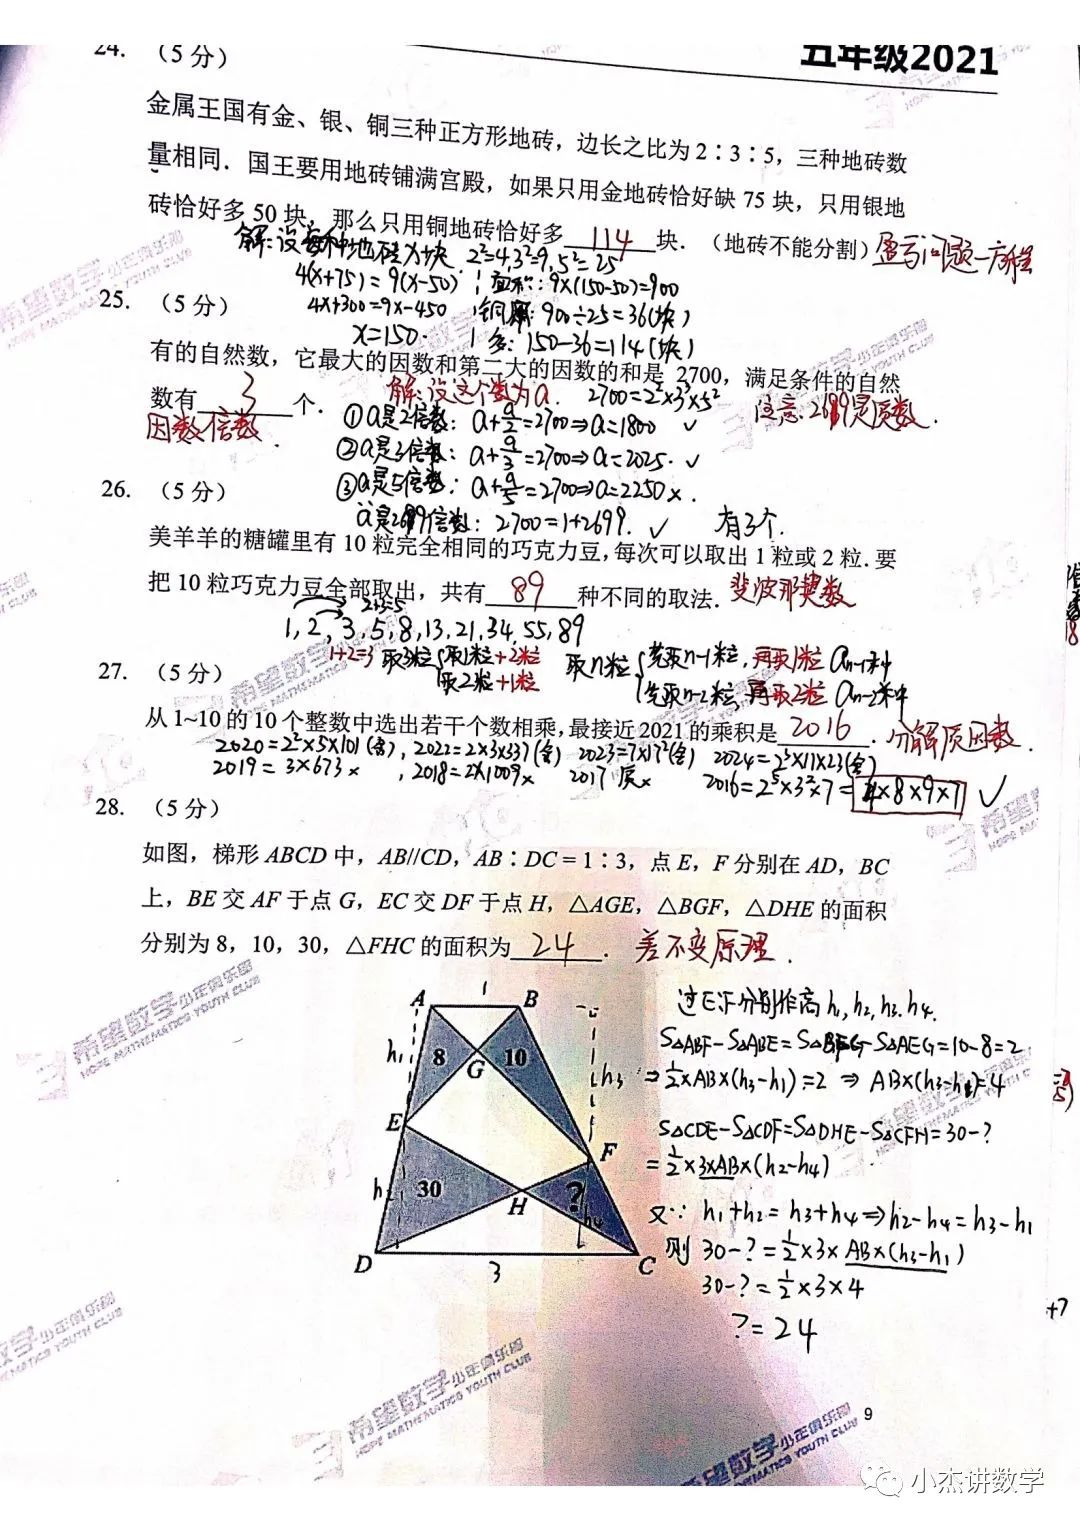 五年级2021
24. （5 分）
金属王国有金、银、铜三种正方形地砖，边长之比为 2：3：5，三种地砖数
量相同．国王要用地砖铺满宫殿，如果只用金地砖恰好缺 75 块，只用银地
砖恰好多 50 块，那么只用铜地砖恰好多 114 块．（地砖不能分割）盈亏问题—方程
解:设每种地砖为x块. 2²=4,3²=9,5²=25
4(x+75)=9(x-50) 面积:9×(150-50)=900
4x+300=9x-450 铜用:900÷25=36(块)
x=150. 多:150-36=114(块)
25. （5 分）
有的自然数，它最大的因数和第二大的因数的和是 2700，满足条件的自然
数有 3 个． 解:设这个数为a. 2700=2²×3³×5² 注意:2699是质数.
因数倍数
①a是2倍数: a+a/2=2700⇒a=1800 ✓
②a是3倍数: a+a/3=2700⇒a=2025. ✓
③a是5倍数: a+a/5=2700⇒a=2250×.
a是2699倍数: 2700=1+2699. ✓ 有3个.
26. （5 分）
美羊羊的糖罐里有 10 粒完全相同的巧克力豆，每次可以取出 1 粒或 2 粒．要
把 10 粒巧克力豆全部取出，共有 89 种不同的取法．斐波那契数
2+3=5
1,2,3,5,8,13,21,34,55,89
1+2=3 取3粒 取1粒+2粒 取n粒 先取n-1粒,再取1粒 an-1种
取2粒+1粒 先取n-2粒,再取2粒 an-2种
27. （5 分）
从 1~10 的 10 个整数中选出若干个数相乘，最接近 2021 的乘积是 2016 ．分解质因数.
2020=2²×5×101(舍), 2022=2×3×337(舍) 2023=7×17²(舍) 2024=2³×11×23(舍)
2019=3×673×, 2018=2×1009× 2017质× 2016=2⁵×3²×7=4×8×9×7 ✓
28. （5 分）
如图，梯形 ABCD 中，AB//CD，AB：DC = 1：3，点 E，F 分别在 AD，BC
上，BE 交 AF 于点 G，EC 交 DF 于点 H，△AGE，△BGF，△DHE 的面积
分别为 8，10，30，△FHC 的面积为 24 ．差不变原理.
A 1 B
h₁ 8 G 10 h₃
E
F
h₂ 30 H ? h₄
D 3 C
过E、F分别作高h₁,h₂,h₃,h₄.
S△ABF-S△ABE=S△BFG-S△AEG=10-8=2
⇒½×AB×(h₃-h₁)=2 ⇒ AB×(h₃-h₁)=4
S△CDE-S△CDF=S△DHE-S△CFH=30-?
=½×3×AB×(h₂-h₄)
又∵ h₁+h₂=h₃+h₄⇒h₂-h₄=h₃-h₁
则 30-?=½×3×AB×(h₃-h₁)
30-?=½×3×4
?=24
+7
9
希望数学少年俱乐部
HOPE MATHEMATICS YOUTH CLUB
小杰讲数学